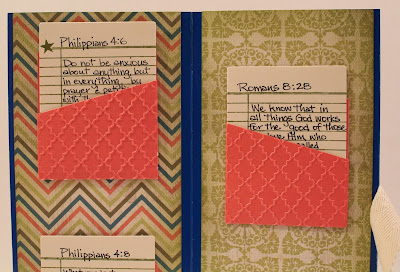 Philippians 4:6
Do not be anxious
about anything, but
in everything, by
prayer & peti
with th
Romans 8:28
We know that in
all things God works
for the good of those
love Him, who
called
Philippians 4:8